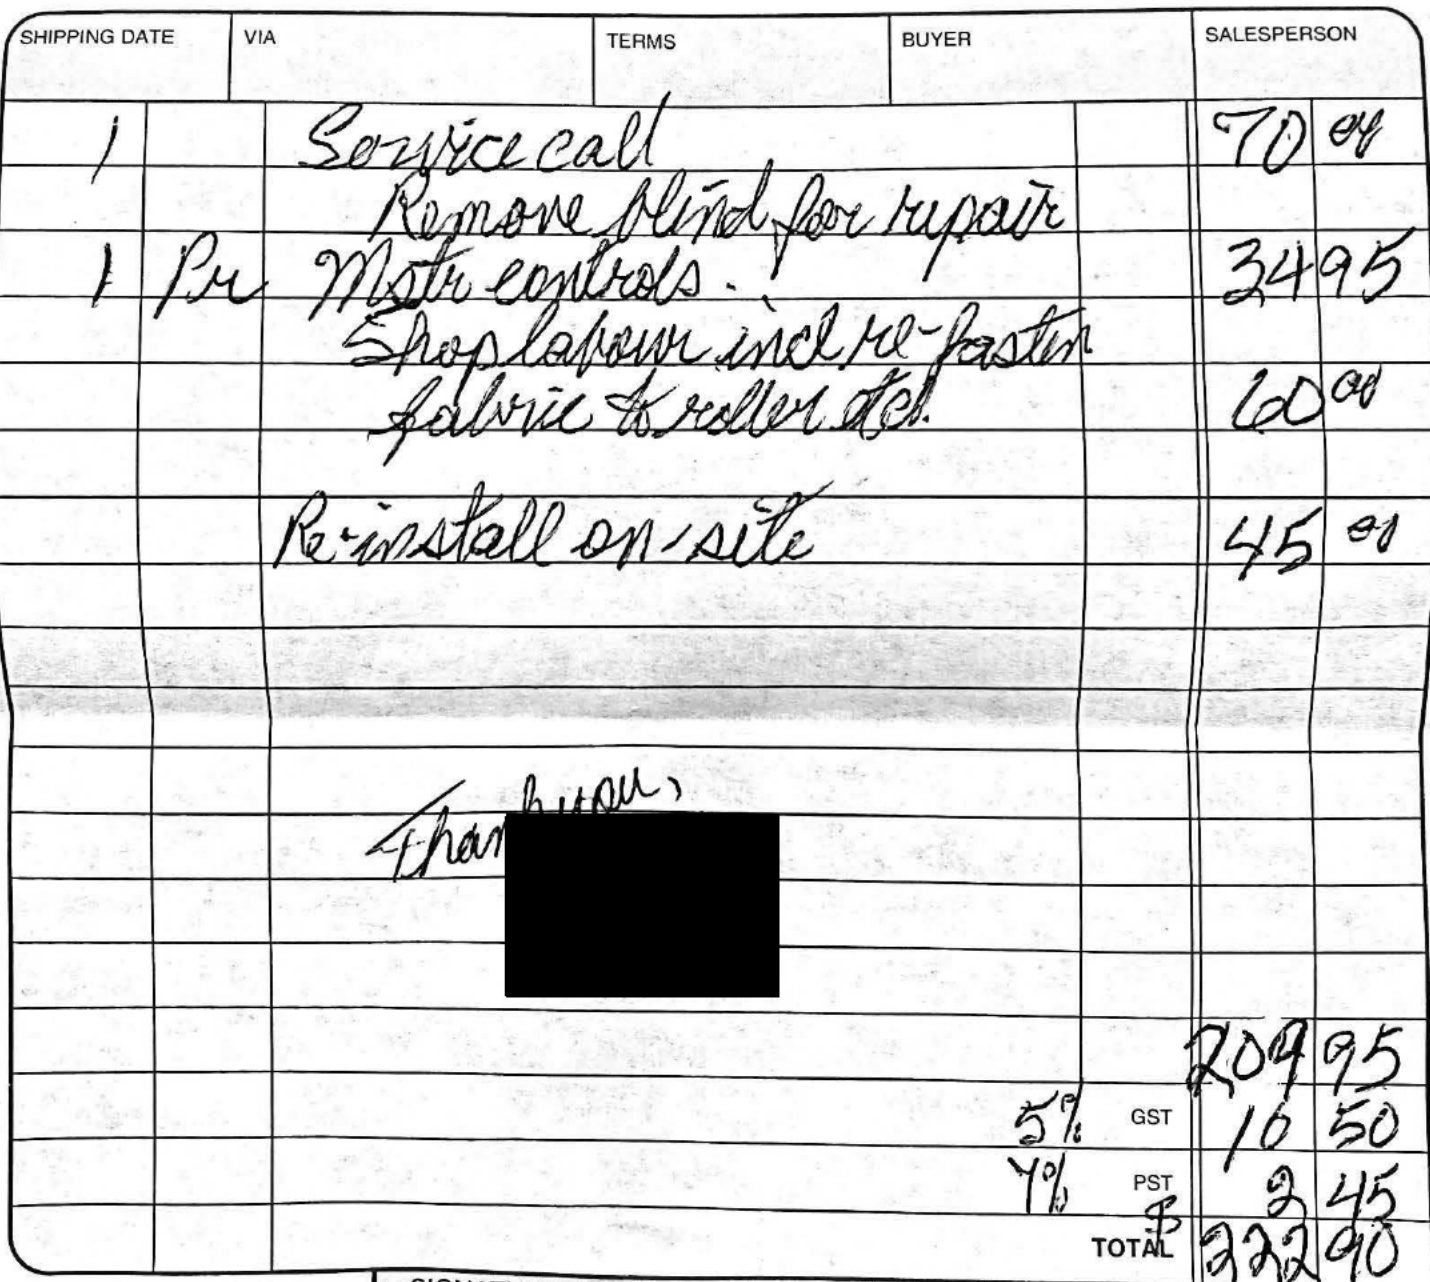 SHIPPING DATE VIA TERMS BUYER SALESPERSON
1 Service call 70 00
Remove blind for repair
1 Pr Motr controls. 34 95
Shop labour incl re-fasten
fabric to roller etc. 60 00
Re-install on-site 45 00
Thank you,
209 95
5% GST 10 50
7% PST 2 45
TOTAL $ 222 90